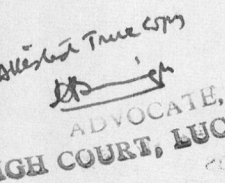 Attested True Copy
ADVOCATE,
IGH COURT, LUC